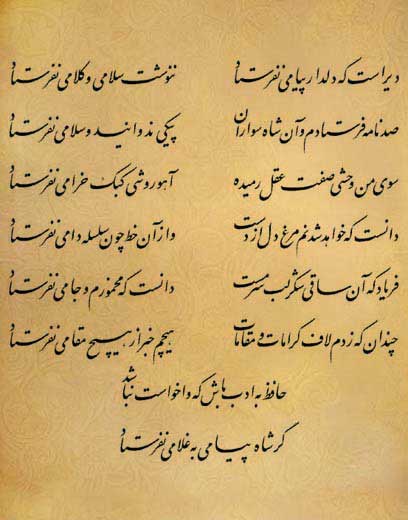 دیر است که دلدار پیامی نفرستاد ننوشت سلامی و کلامی نفرستاد
صد نامه فرستادم و آن شاه سواران پیکی ندوانید و سلامی نفرستاد
سوی من وحشی صفت عقل رمیده آهوروشی کبک خرامی نفرستاد
دانست که خواهد شدنم مرغ دل از دست وز آن خط چون سلسله دامی نفرستاد
فریاد که آن ساقی شکر لب سرمست دانست که مخمورم و جامی نفرستاد
چندان که زدم لاف کرامات و مقامات هیچم خبر از هیچ مقامی نفرستاد
حافظ به ادب باش که واخواست نباشد
گر شاه پیامی به غلامی نفرستاد